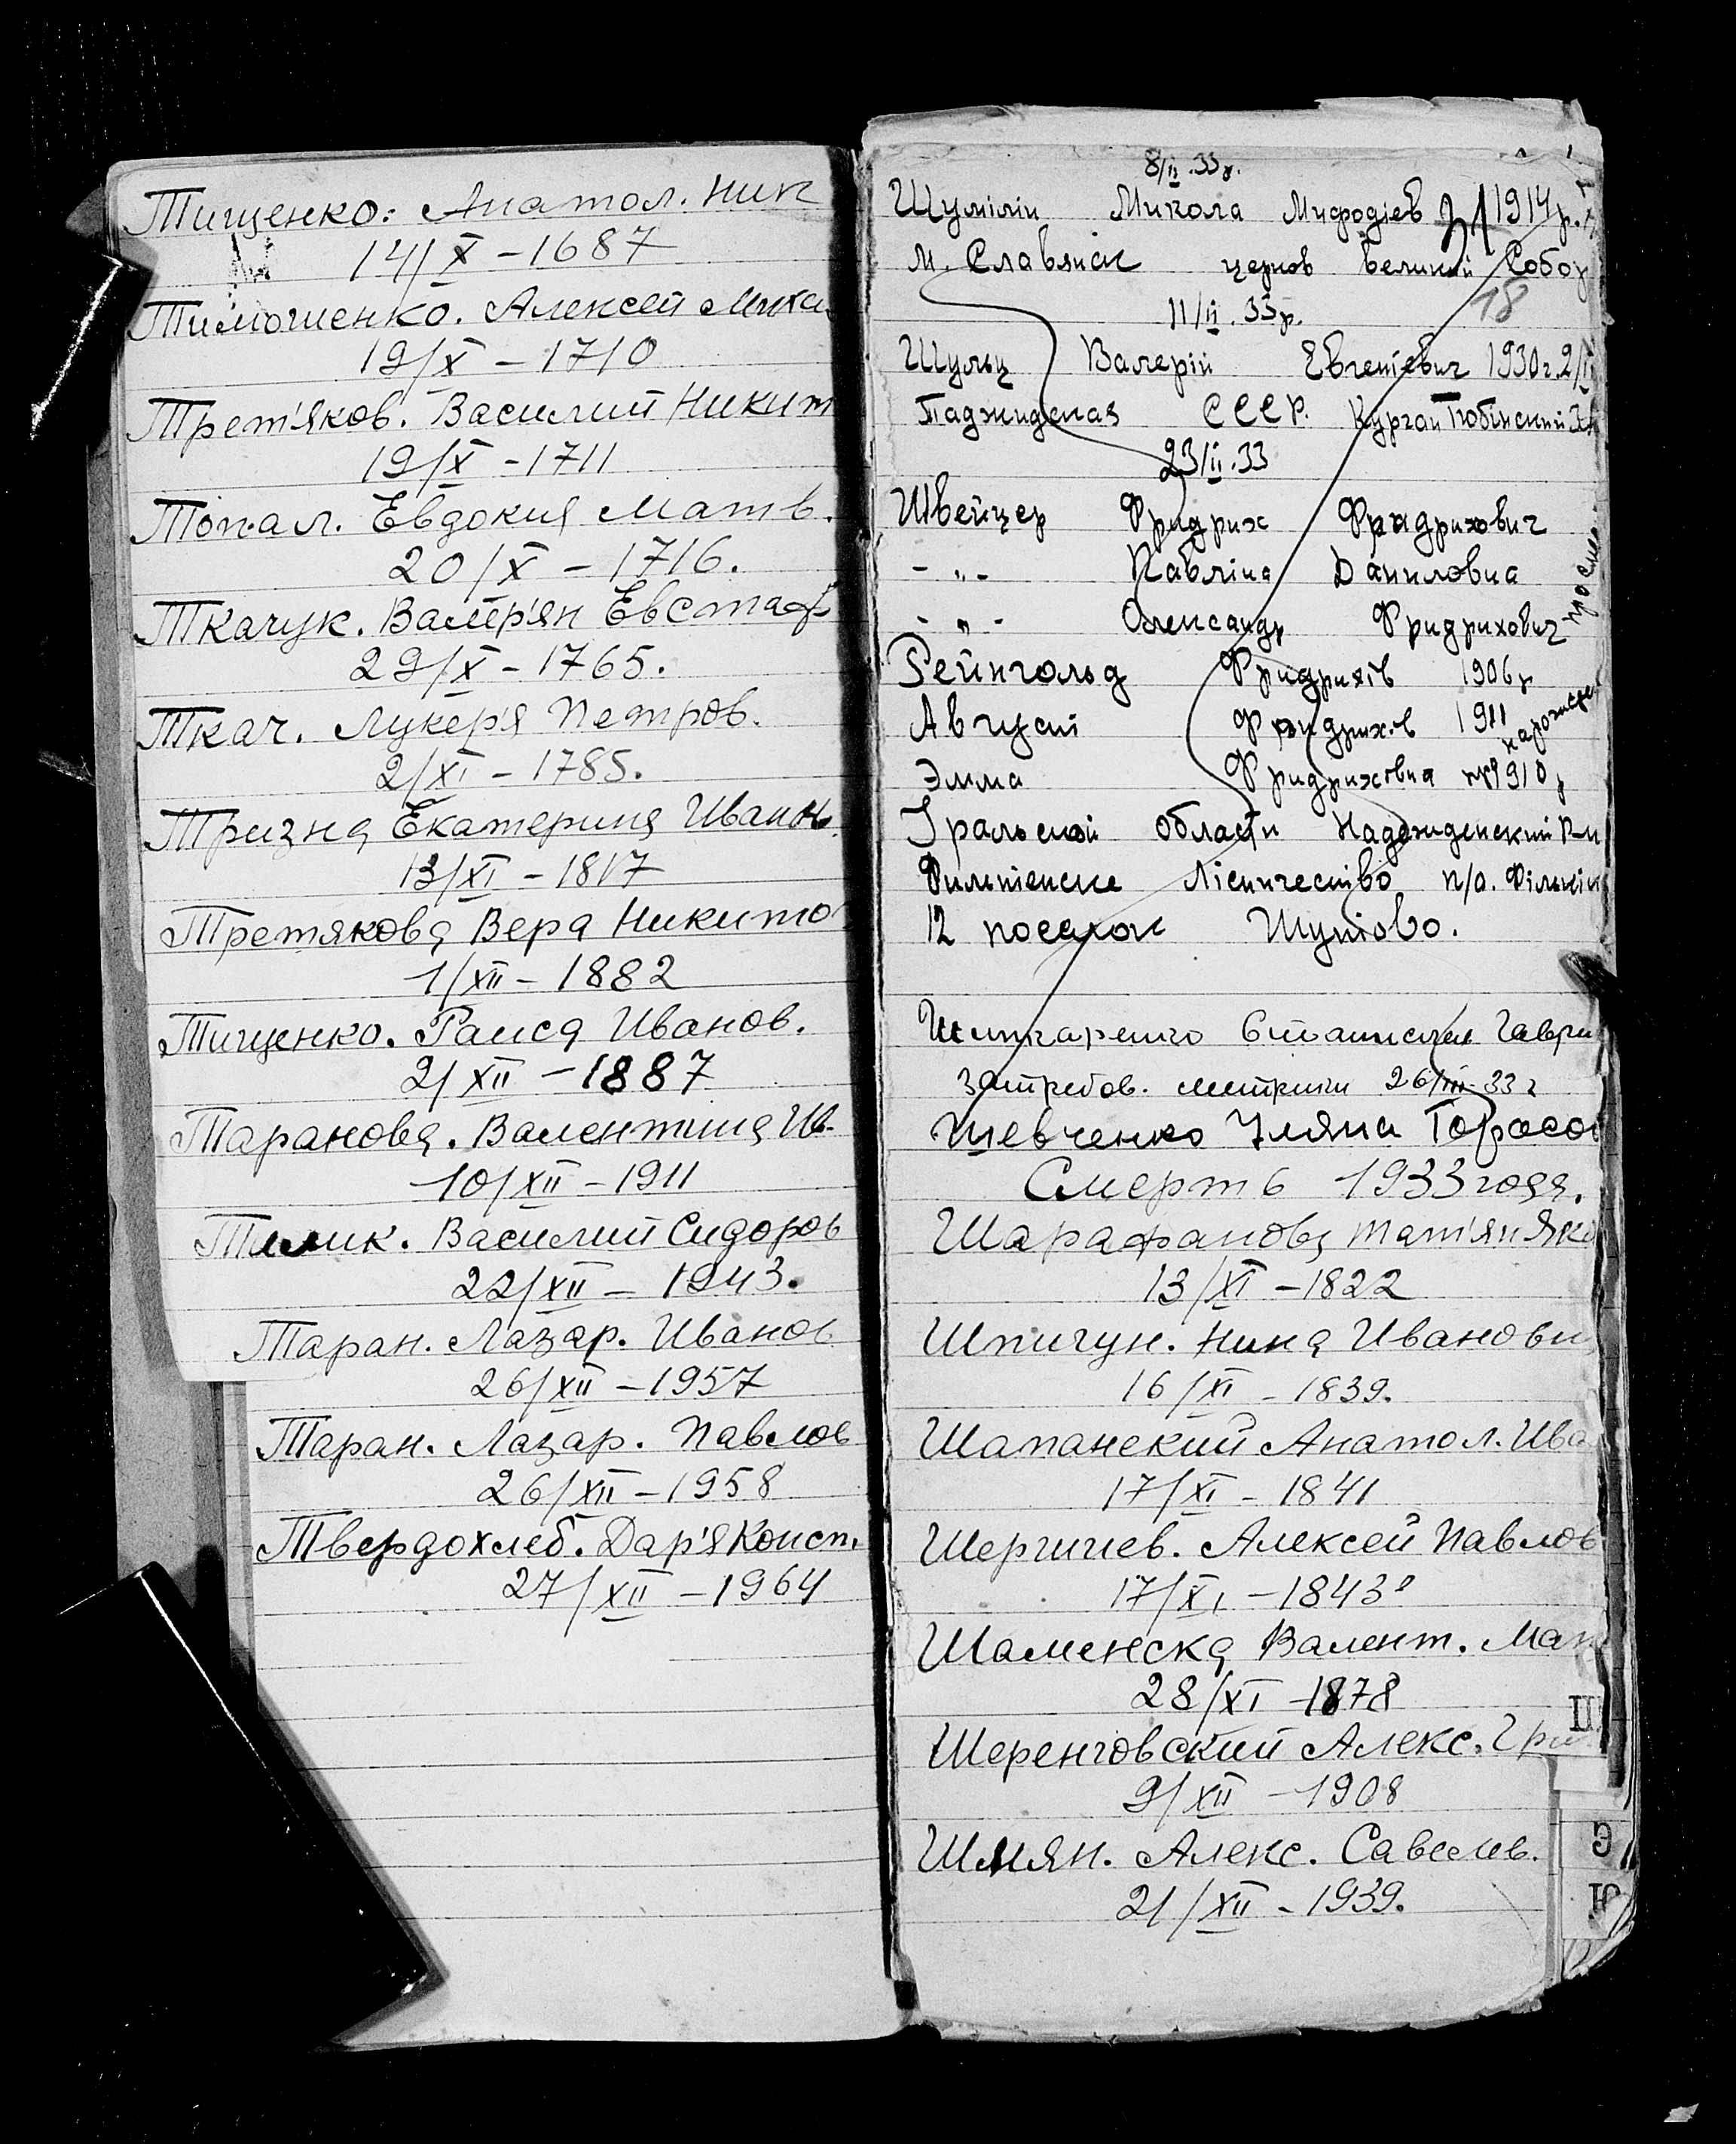 Тищенко. Анатол. Ник
14/X - 1687
Тимошенко. Алексей Миха
19/X - 1710
Трет'яков. Василий Никит
19/X - 1711
Топал. Евдокия Матв.
20/X - 1716.
Ткачук. Валер'ян Евстаф
29/X - 1765.
Ткач. Лукер'я Петров.
2/XI - 1785.
Тризна Екатерина Иванн.
13/XI - 1817
Третякова Вера Никито
1/XII - 1882
Тищенко. Раиса Иванов.
2/XII - 1887
Таранова. Валентина Ив.
10/XII - 1911
Василий Сидоров
22/XII - 1943.
Таран. Лазар. Иванов
26/XII - 1957
Таран. Лазар. Павлов
26/XII - 1958
Твердохлеб. Дар'я Конст.
27/XII - 1964
8/II.33г.
Шумілін Микола Мифодіев 31 1914р.
м. Славянск церков великий Собор
18
11/II.33р.
Шульц Валерій Евгеніевич 1930г. 2/
Таджидская СССР. Курган Тюбінский
23/II.33
Швейцер Фридрих Фридрихович
- " - Павліна Даниловна
- " - Олександр Фридрихович
Рейнгольд Фридрихів 1906р
Август Фридрихов 1911
Эмма Фридриховна 1910р
Уральской области Надеждинский Р-н
Лісничество п/о.
12 поселок Шупіово.
Станислав Гаври
затребов. метрики 26/III-33г
Шевченко Уляна Тарасов
Смерть 1933 года.
Шарафанова Тат'ян Яко
13/XI - 1822
Шпигун. Нина Ивановн
16/XI - 1839.
Шапанский Анатол. Ива
17/XI - 1841
Алексей Павлов
17/XI - 1843
Шаменска Валент. Мат
28/XI - 1878
Шеренговский Алекс. Гри
9/XII - 1908
Алекс. Савелев.
21/XII - 1939.
Ш
Э
Ю